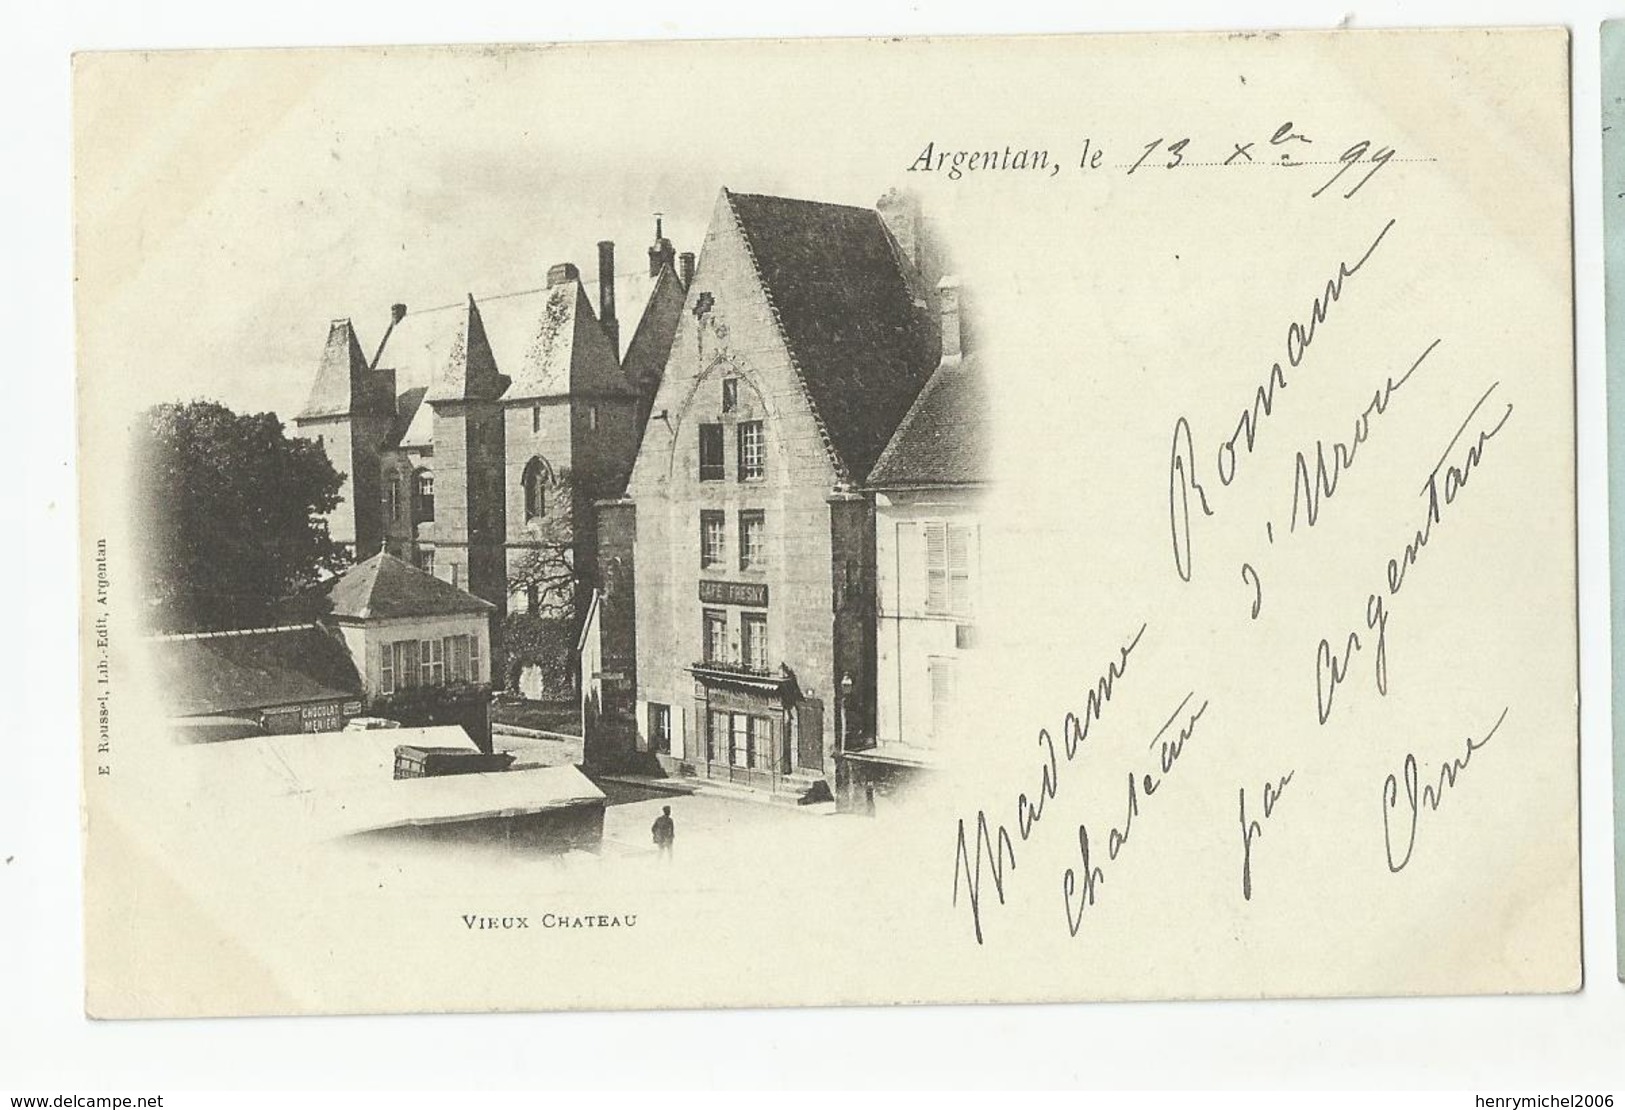 Argentan, le 13 Xbre 99
CAFÉ FRESNY
CHOCOLAT
MENIER
E. Roussel, Lib.-Edit, Argentan
VIEUX CHATEAU
Madame Romann
chateau d'Urou
par Argentan
Orne
www.delcampe.net
henrymichel2006